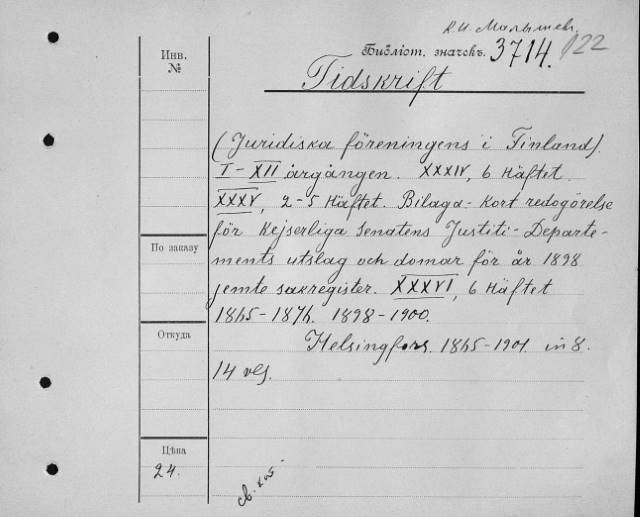 К. И. Малышев.
Библіот. значекъ. 3714. 122
Инв.
№
Tidskrift
(Juridiska föreningens i Finland).
I-XII årgången. XXXIV, 6 Häftet.
XXXV, 2-5 Häftet. Bilaga-Kort redogörelse
för Kejserliga Senatens Justiti-Departe-
По заказу
ments utslag och domar för år 1898
jemte sakregister. XXXVI, 6 Häftet
1865-1876. 1898-1900.
Откуда
Helsingfors. 1865-1901. in 8.
14 vls.
Цѣна
24.
св.